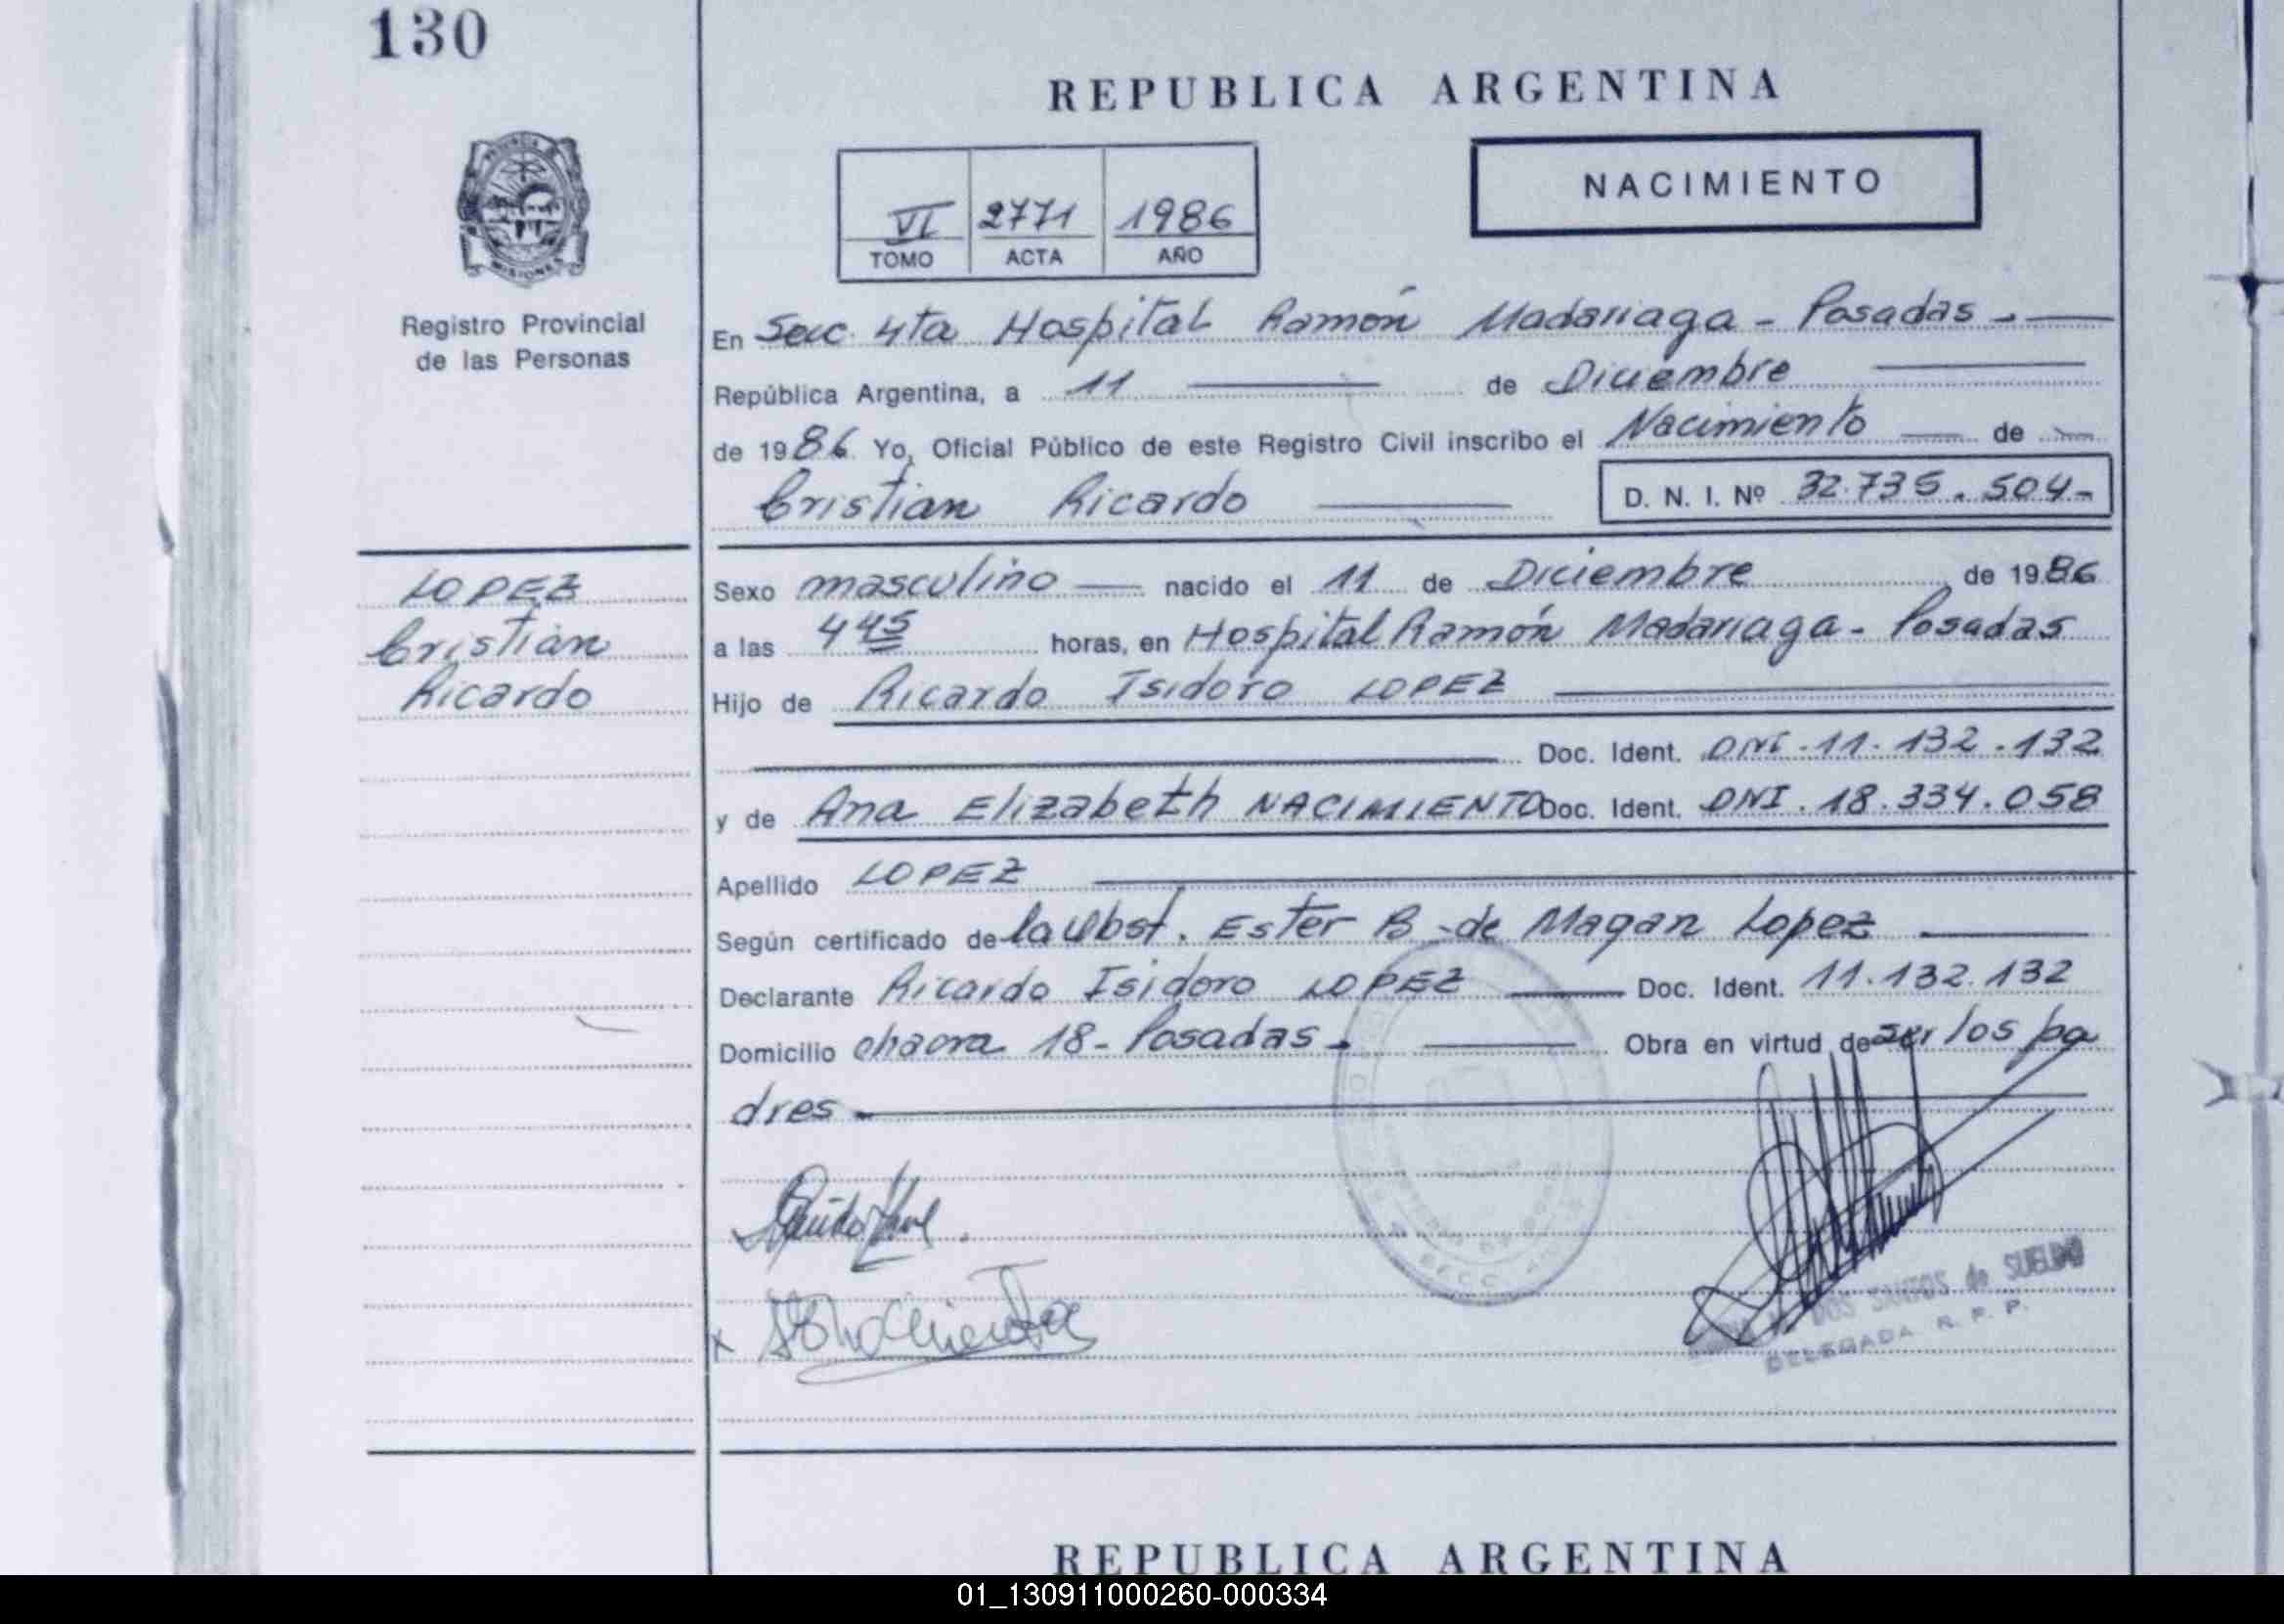 130
REPUBLICA ARGENTINA
NACIMIENTO
VI 2771 1986
TOMO ACTA AÑO
PROVINCIA DE
MISIONES
Registro Provincial
de las Personas
En Secc. 4ta Hospital Ramón Madariaga - Posadas -
República Argentina, a 11 de Diciembre
de 1986 Yo, Oficial Público de este Registro Civil inscribo el Nacimiento de
Cristian Ricardo D. N. I. Nº 32.735.504-
LOPEZ
Cristian
Ricardo
Sexo masculino nacido el 11 de Diciembre de 1986
a las 4 45 horas, en Hospital Ramón Madariaga - Posadas
Hijo de Ricardo Isidoro LOPEZ
Doc. Ident. DNI. 11.132.132
y de Ana Elizabeth NACIMIENTO Doc. Ident. DNI. 18.334.058
Apellido LOPEZ
Según certificado de la Obst. Ester B. de Magan Lopez
Declarante Ricardo Isidoro LOPEZ Doc. Ident. 11.132.132
Domicilio chacra 18 - Posadas - Obra en virtud de ser los pa
dres
DOS SANTOS de SUELDO
DELEGADA R. P. P.
REPUBLICA ARGENTINA
01_130911000260-000334